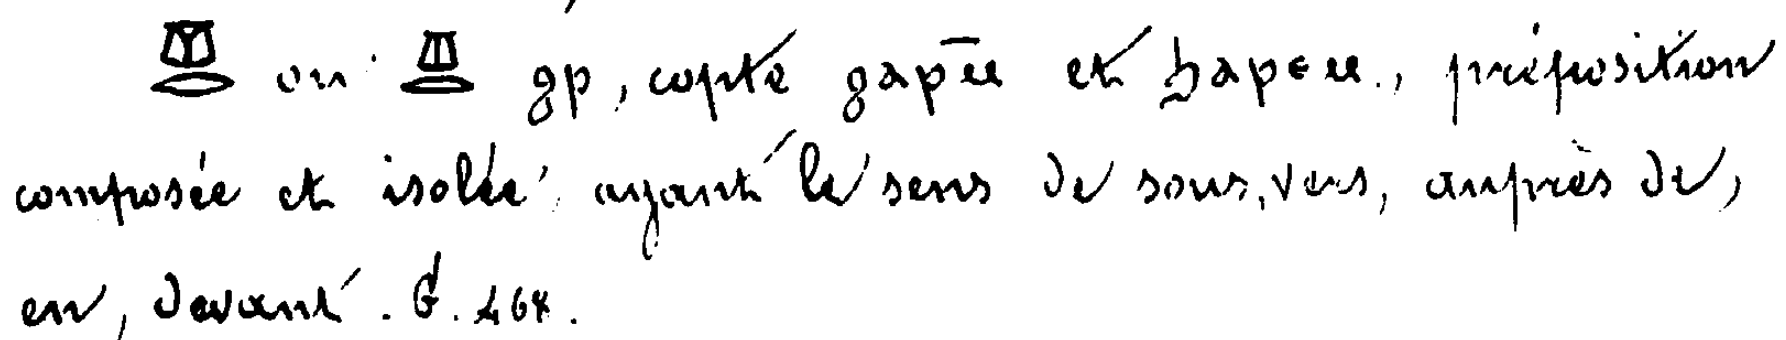 𓎼𓂋 ou 𓎼𓂋 ϩⲣ, copte ϩⲁⲣⲙ̄ et ϧⲁⲣⲉⲙ., préposition
composée et isolée, ayant le sens de sous, vers, auprès de,
en, devant. G. 468.